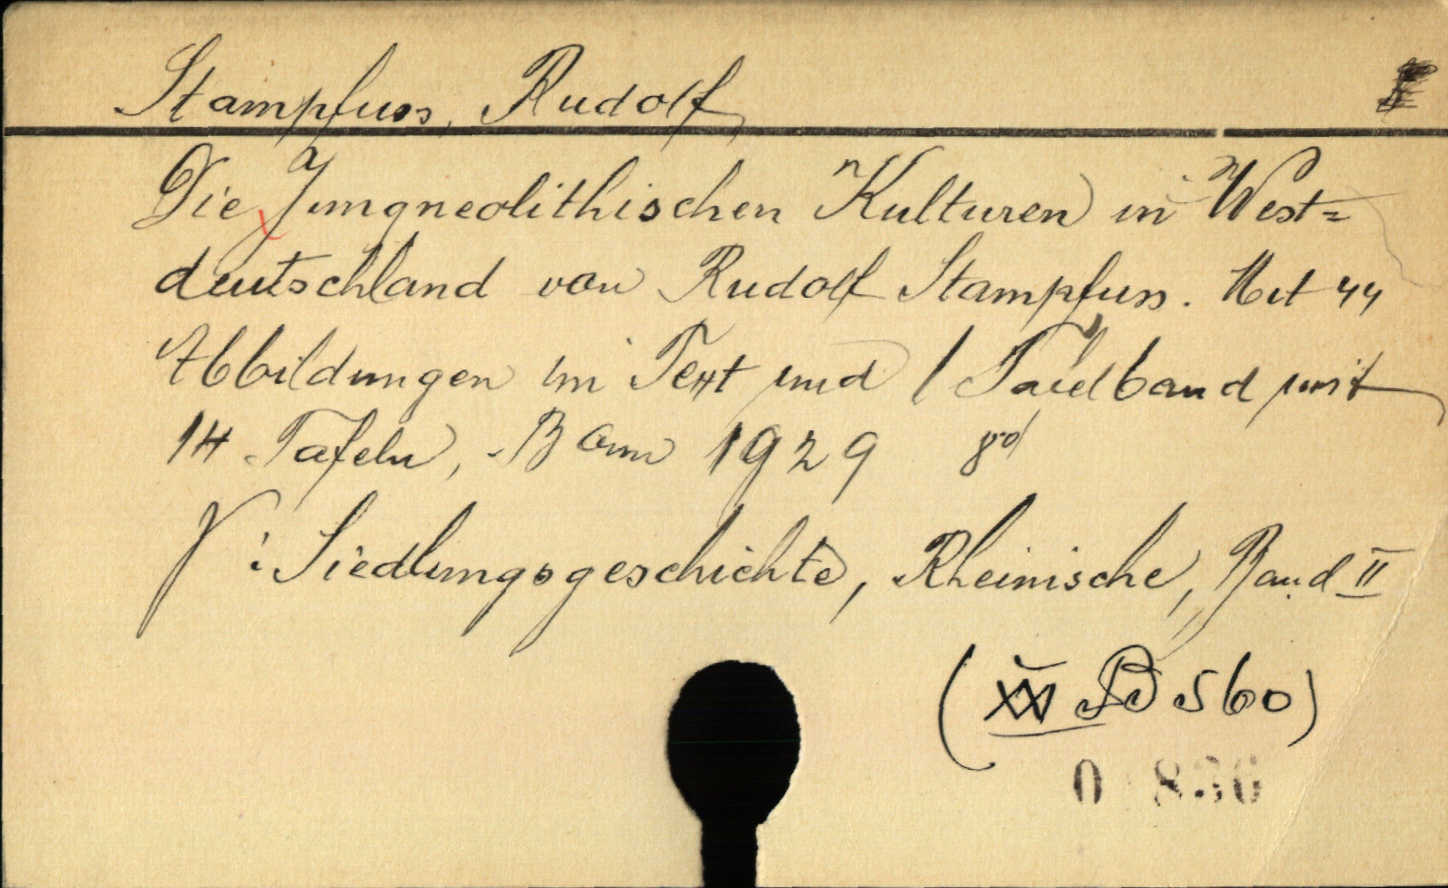 Stampfuss, Rudolf
Die Jungneolithischen Kulturen in West=
deutschland von Rudolf Stampfuss. Mit 44
Abbildungen im Text und 1 Tafelband mit
14 Tafeln, Bonn 1929 8°
V: Siedlungsgeschichte, Rheinische, Band II
B 560)
0 836